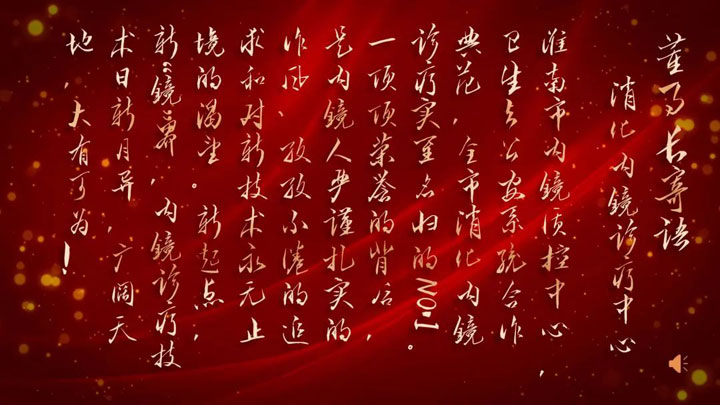 董事长寄语
消化内镜诊疗中心
淮南市内镜质控中心，
卫生与公安系统合作
典范，全市消化内镜
诊疗实至名归的NO.1。
一项项荣誉的背后，
是内镜人严谨扎实的
作风、孜孜不倦的追
求和对新技术永无止
境的渴望。新起点，
新“镜”界，内镜诊疗技
术日新月异，广阔天
地，大有可为！